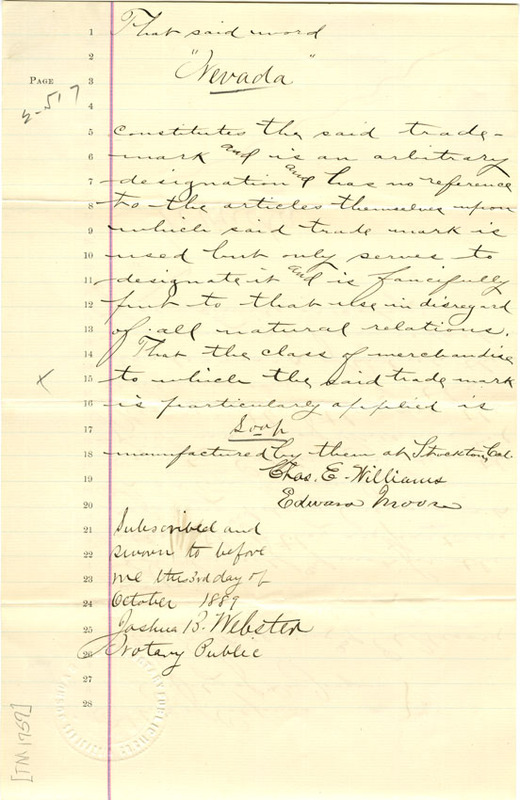 1 That said word
2
PAGE 3 "Nevada"
4
5 constitutes the said trade-
6 mark and is an arbitrary
7 designation and has no reference
8 to the articles themselves upon
9 which said trade mark is
10 used but only serves to
11 designate it and is fancifully
12 put to that use in disregard
13 of all natural relations.
14 That the class of merchandise
15 to which the said trade mark
16 is particularly applied is
17 Soap
18 manufactured by them at Stockton, Cal.
19 Chas. E. Williams
20 Edward Moore
21 Subscribed and
22 sworn to before
23 me this 3rd day of
24 October 1889
25 Joshua B. Webster
26 Notary Public
27
28
[TM 1757]